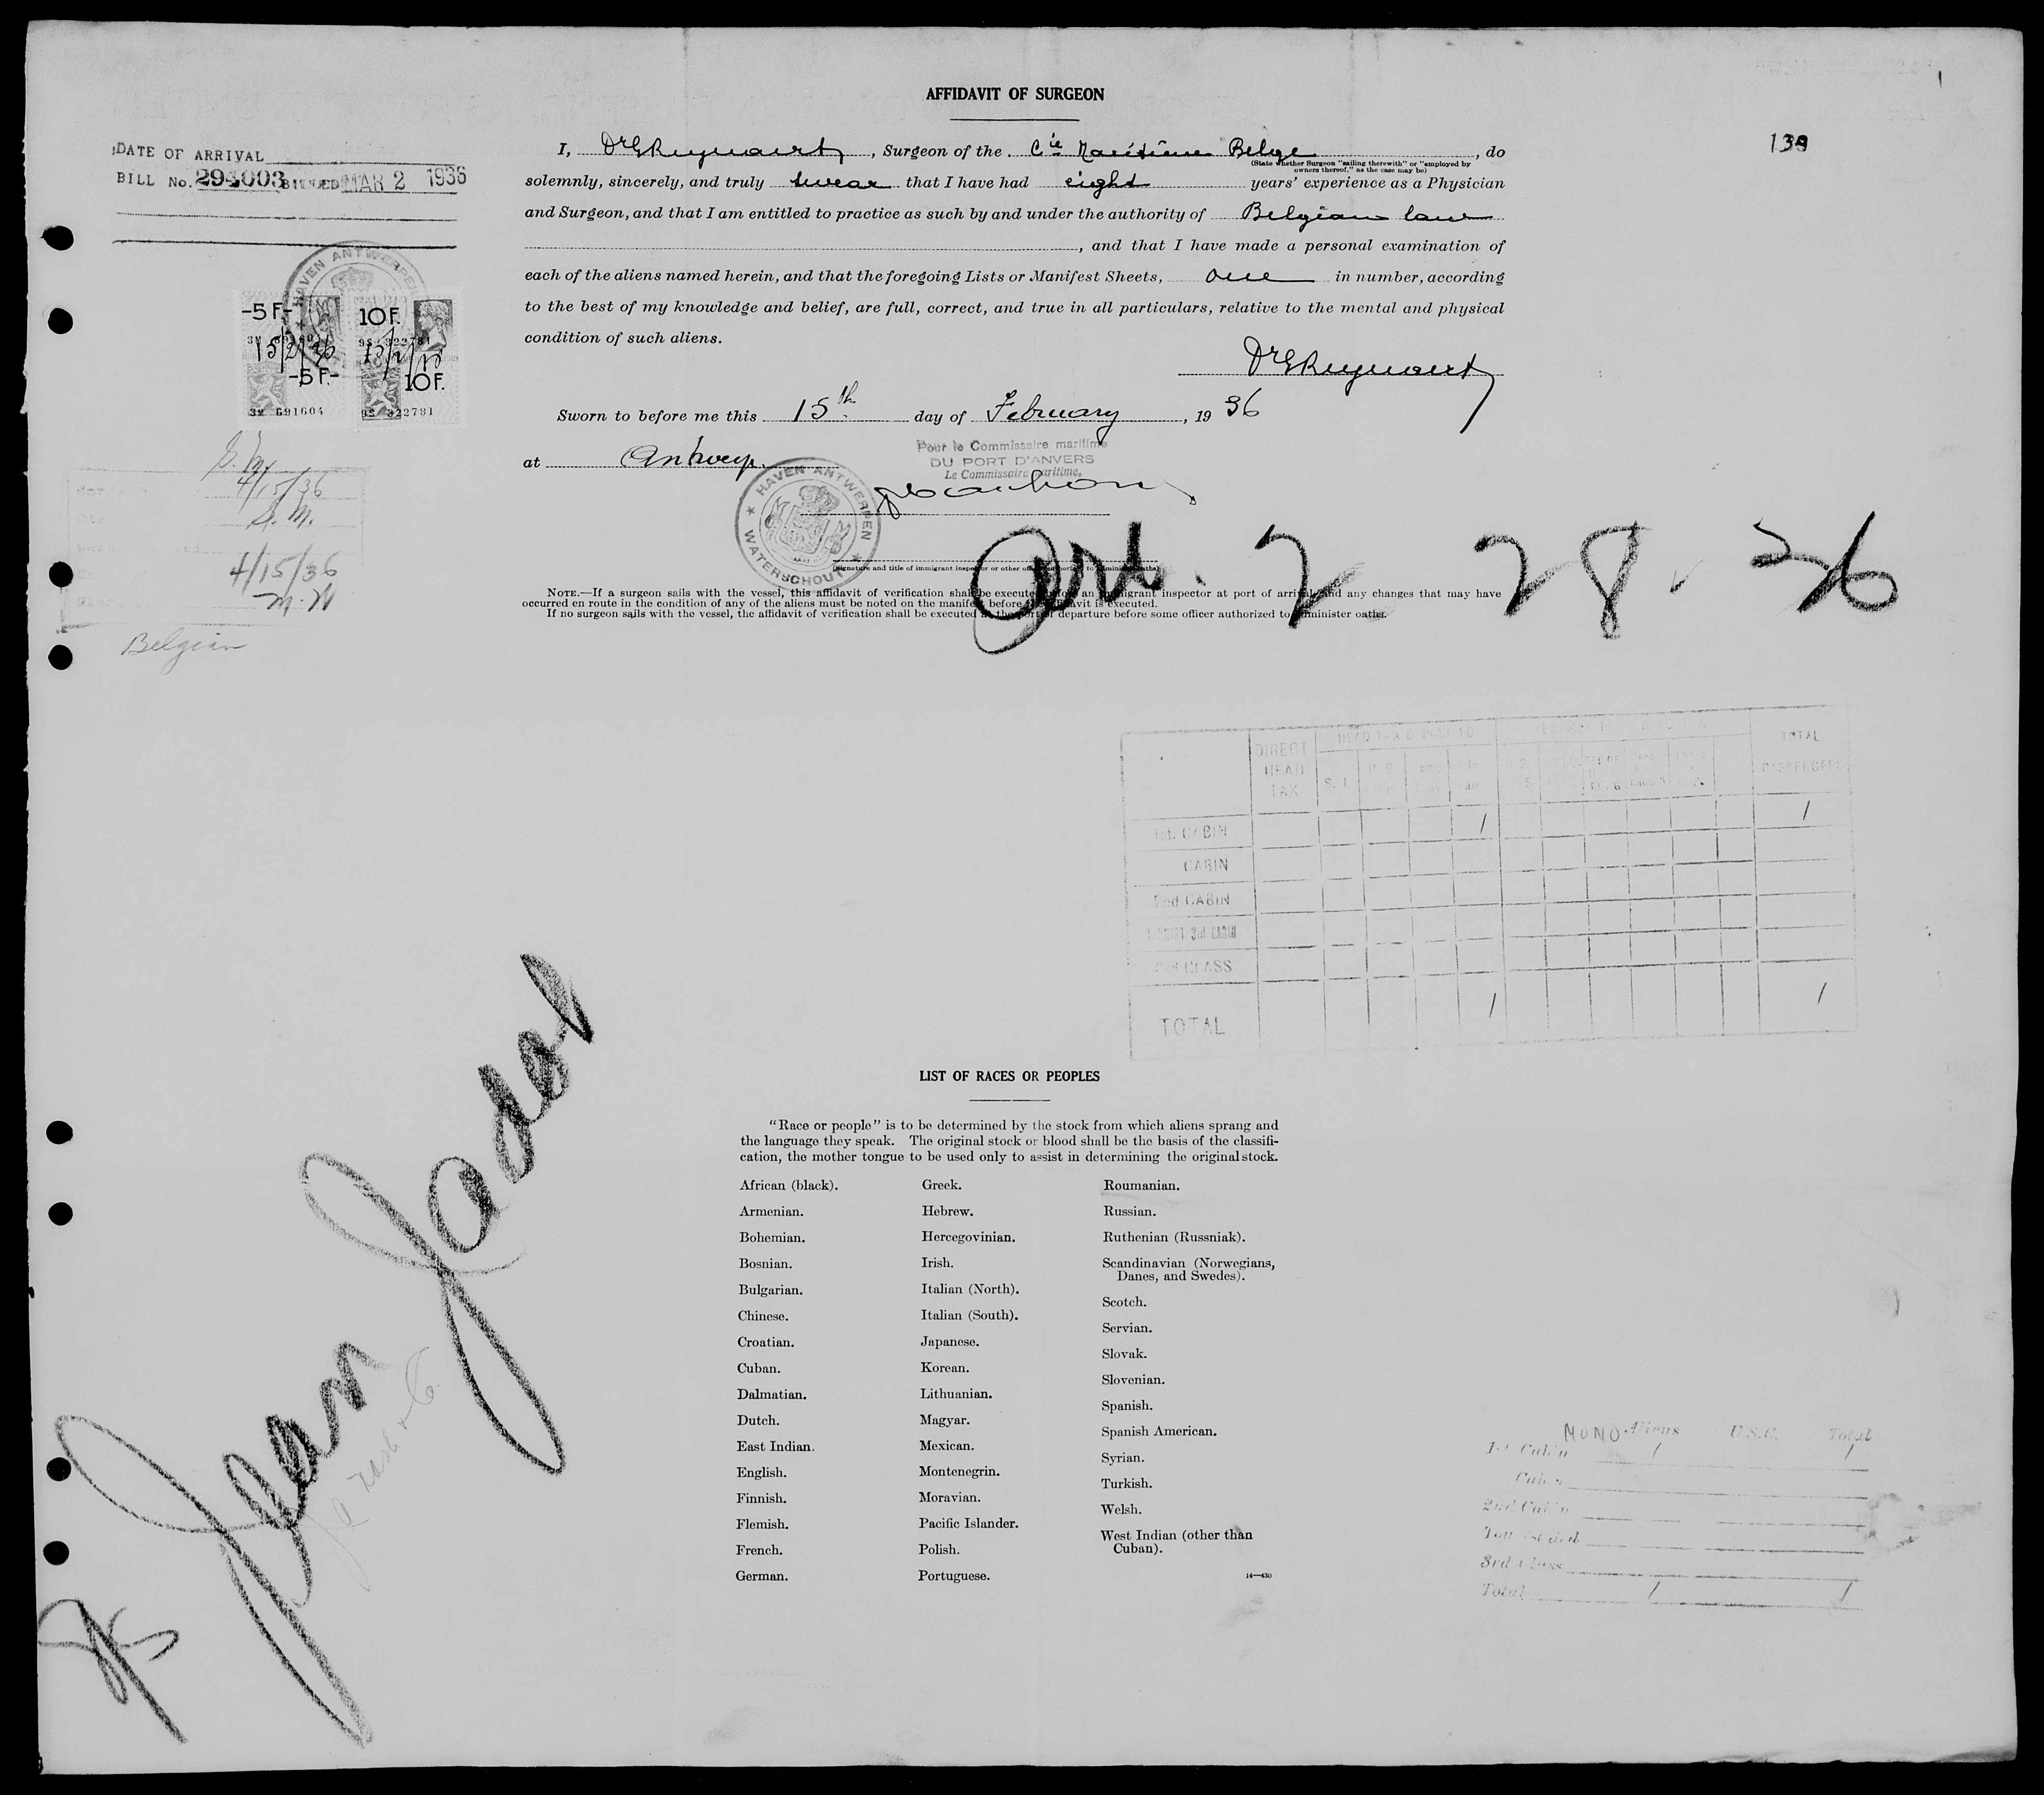 AFFIDAVIT OF SURGEON
139
DATE OF ARRIVAL
BILL No. 294003 BILLED MAR 2 1936
I, , Surgeon of the Cie Maritime Belge, do
(State whether Surgeon "sailing therewith" or "employed by
owners thereof," as the case may be)
solemnly, sincerely, and truly swear that I have had eight years' experience as a Physician
and Surgeon, and that I am entitled to practice as such by and under the authority of Belgian law
, and that I have made a personal examination of
each of the aliens named herein, and that the foregoing Lists or Manifest Sheets, one in number, according
to the best of my knowledge and belief, are full, correct, and true in all particulars, relative to the mental and physical
condition of such aliens.
HAVEN ANTWERPEN
-5 F.- 10 F.
15/2/36
-5 F.- 10 F.
3M 691604 9S 322781
Sworn to before me this 15th day of February, 1936
at Antwerp.
Pour le Commissaire maritime
DU PORT D'ANVERS
Le Commissaire maritime,
HAVEN ANTWERPEN
WATERSCHOUT
4/15/36
S. M.
4/15/36
M. W
Belgian
(Signature and title of immigrant inspector or other officer authorized to administer oaths)
Art. 2 28. 36
NOTE.—If a surgeon sails with the vessel, this affidavit of verification shall be executed before an immigrant inspector at port of arrival, and any changes that may have
occurred en route in the condition of any of the aliens must be noted on the manifest before affidavit is executed.
If no surgeon sails with the vessel, the affidavit of verification shall be executed at the port of departure before some officer authorized to administer oaths.
DIRECT HEAD TAX
TOTAL PASSENGERS
1st. CABIN 1 1
CABIN
2nd CABIN
TOURIST 3rd CABIN
3rd CLASS
TOTAL 1 1
Jean Jadot
LIST OF RACES OR PEOPLES
"Race or people" is to be determined by the stock from which aliens sprang and
the language they speak. The original stock or blood shall be the basis of the classifi-
cation, the mother tongue to be used only to assist in determining the original stock.
African (black).
Armenian.
Bohemian.
Bosnian.
Bulgarian.
Chinese.
Croatian.
Cuban.
Dalmatian.
Dutch.
East Indian.
English.
Finnish.
Flemish.
French.
German.
Greek.
Hebrew.
Hercegovinian.
Irish.
Italian (North).
Italian (South).
Japanese.
Korean.
Lithuanian.
Magyar.
Mexican.
Montenegrin.
Moravian.
Pacific Islander.
Polish.
Portuguese.
Roumanian.
Russian.
Ruthenian (Russniak).
Scandinavian (Norwegians,
Danes, and Swedes).
Scotch.
Servian.
Slovak.
Slovenian.
Spanish.
Spanish American.
Syrian.
Turkish.
Welsh.
West Indian (other than
Cuban).
14—430
MONO Aliens U.S.C. Total
1st Cabin 1 1
Cabin
2nd Cabin
Tourist 3rd
3rd Class
Total 1 1